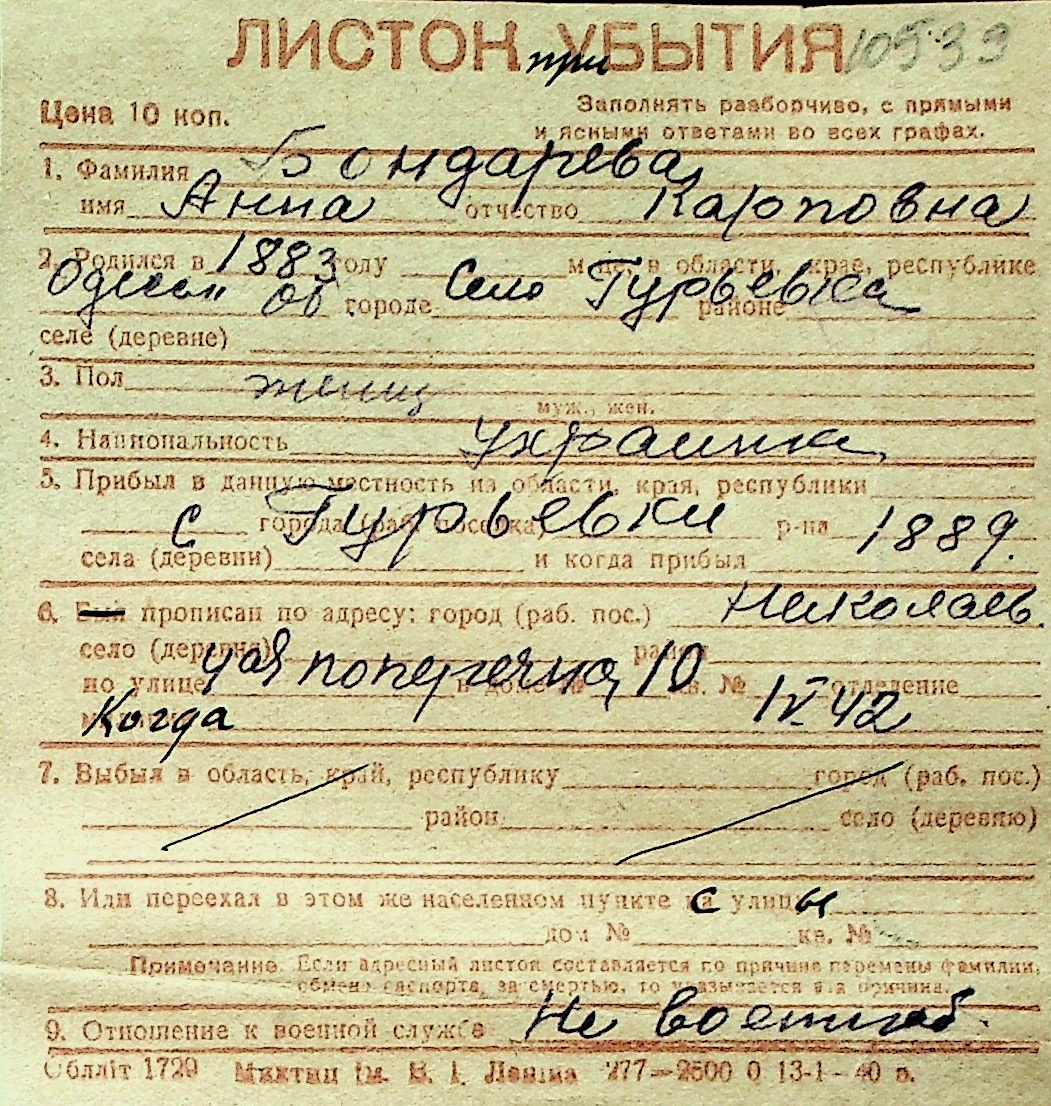 ЛИСТОК при УБЫТИЯ 10533
Цена 10 коп.
Заполнять разборчиво, с прямыми
и ясными ответами во всех графах.
1. Фамилия Бондарева
имя Анна отчество Карповна
2. Родился в 1883 году м-це, в области, крае, республике
Одесск об городе Село Гурьевка районе
селе (деревне)
3. Пол женщ
муж., жен.
4. Национальность украинка
5. Прибыл в данную местность из области, края, республики
с города (раб. поселка) Гурьевки р-на 1889.
села (деревни) и когда прибыл
6. Был прописан по адресу: город (раб. пос.) Николаев.
село (деревня) район
по улице 4ая поперечна 10 в доме № кв. № отделение
Когда IV 42
7. Выбыл в область, край, республику город (раб. пос.)
район село (деревню)
8. Или переехал в этом же населенном пункте с улицы
дом № кв. №
Примечание. Если адресный листок составляется по причине перемены фамилии,
обмена паспорта, за смертью, то указывается эта причина.
9. Отношение к военной службе Не военнооб.
Облліт 1729 Миктип ім. В. І. Леніна 277—2500 0 13-1-40 р.